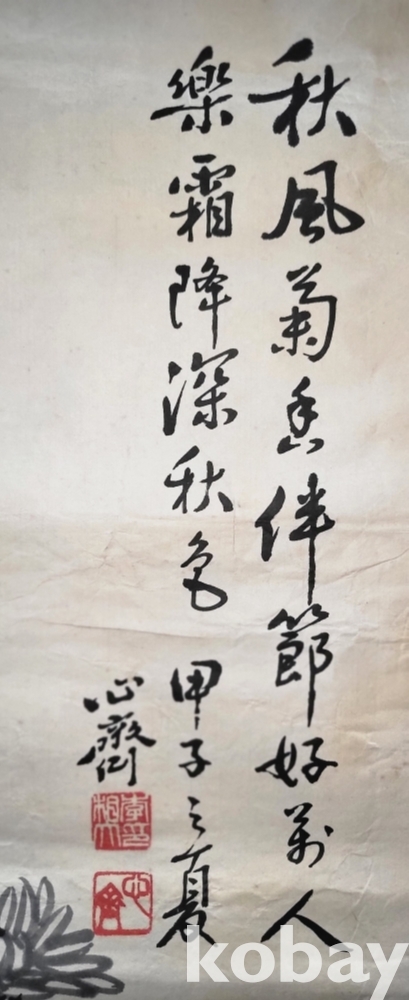 秋風菊香伴節好萬人
樂霜降深秋色 甲子之夏
心齋
kobay